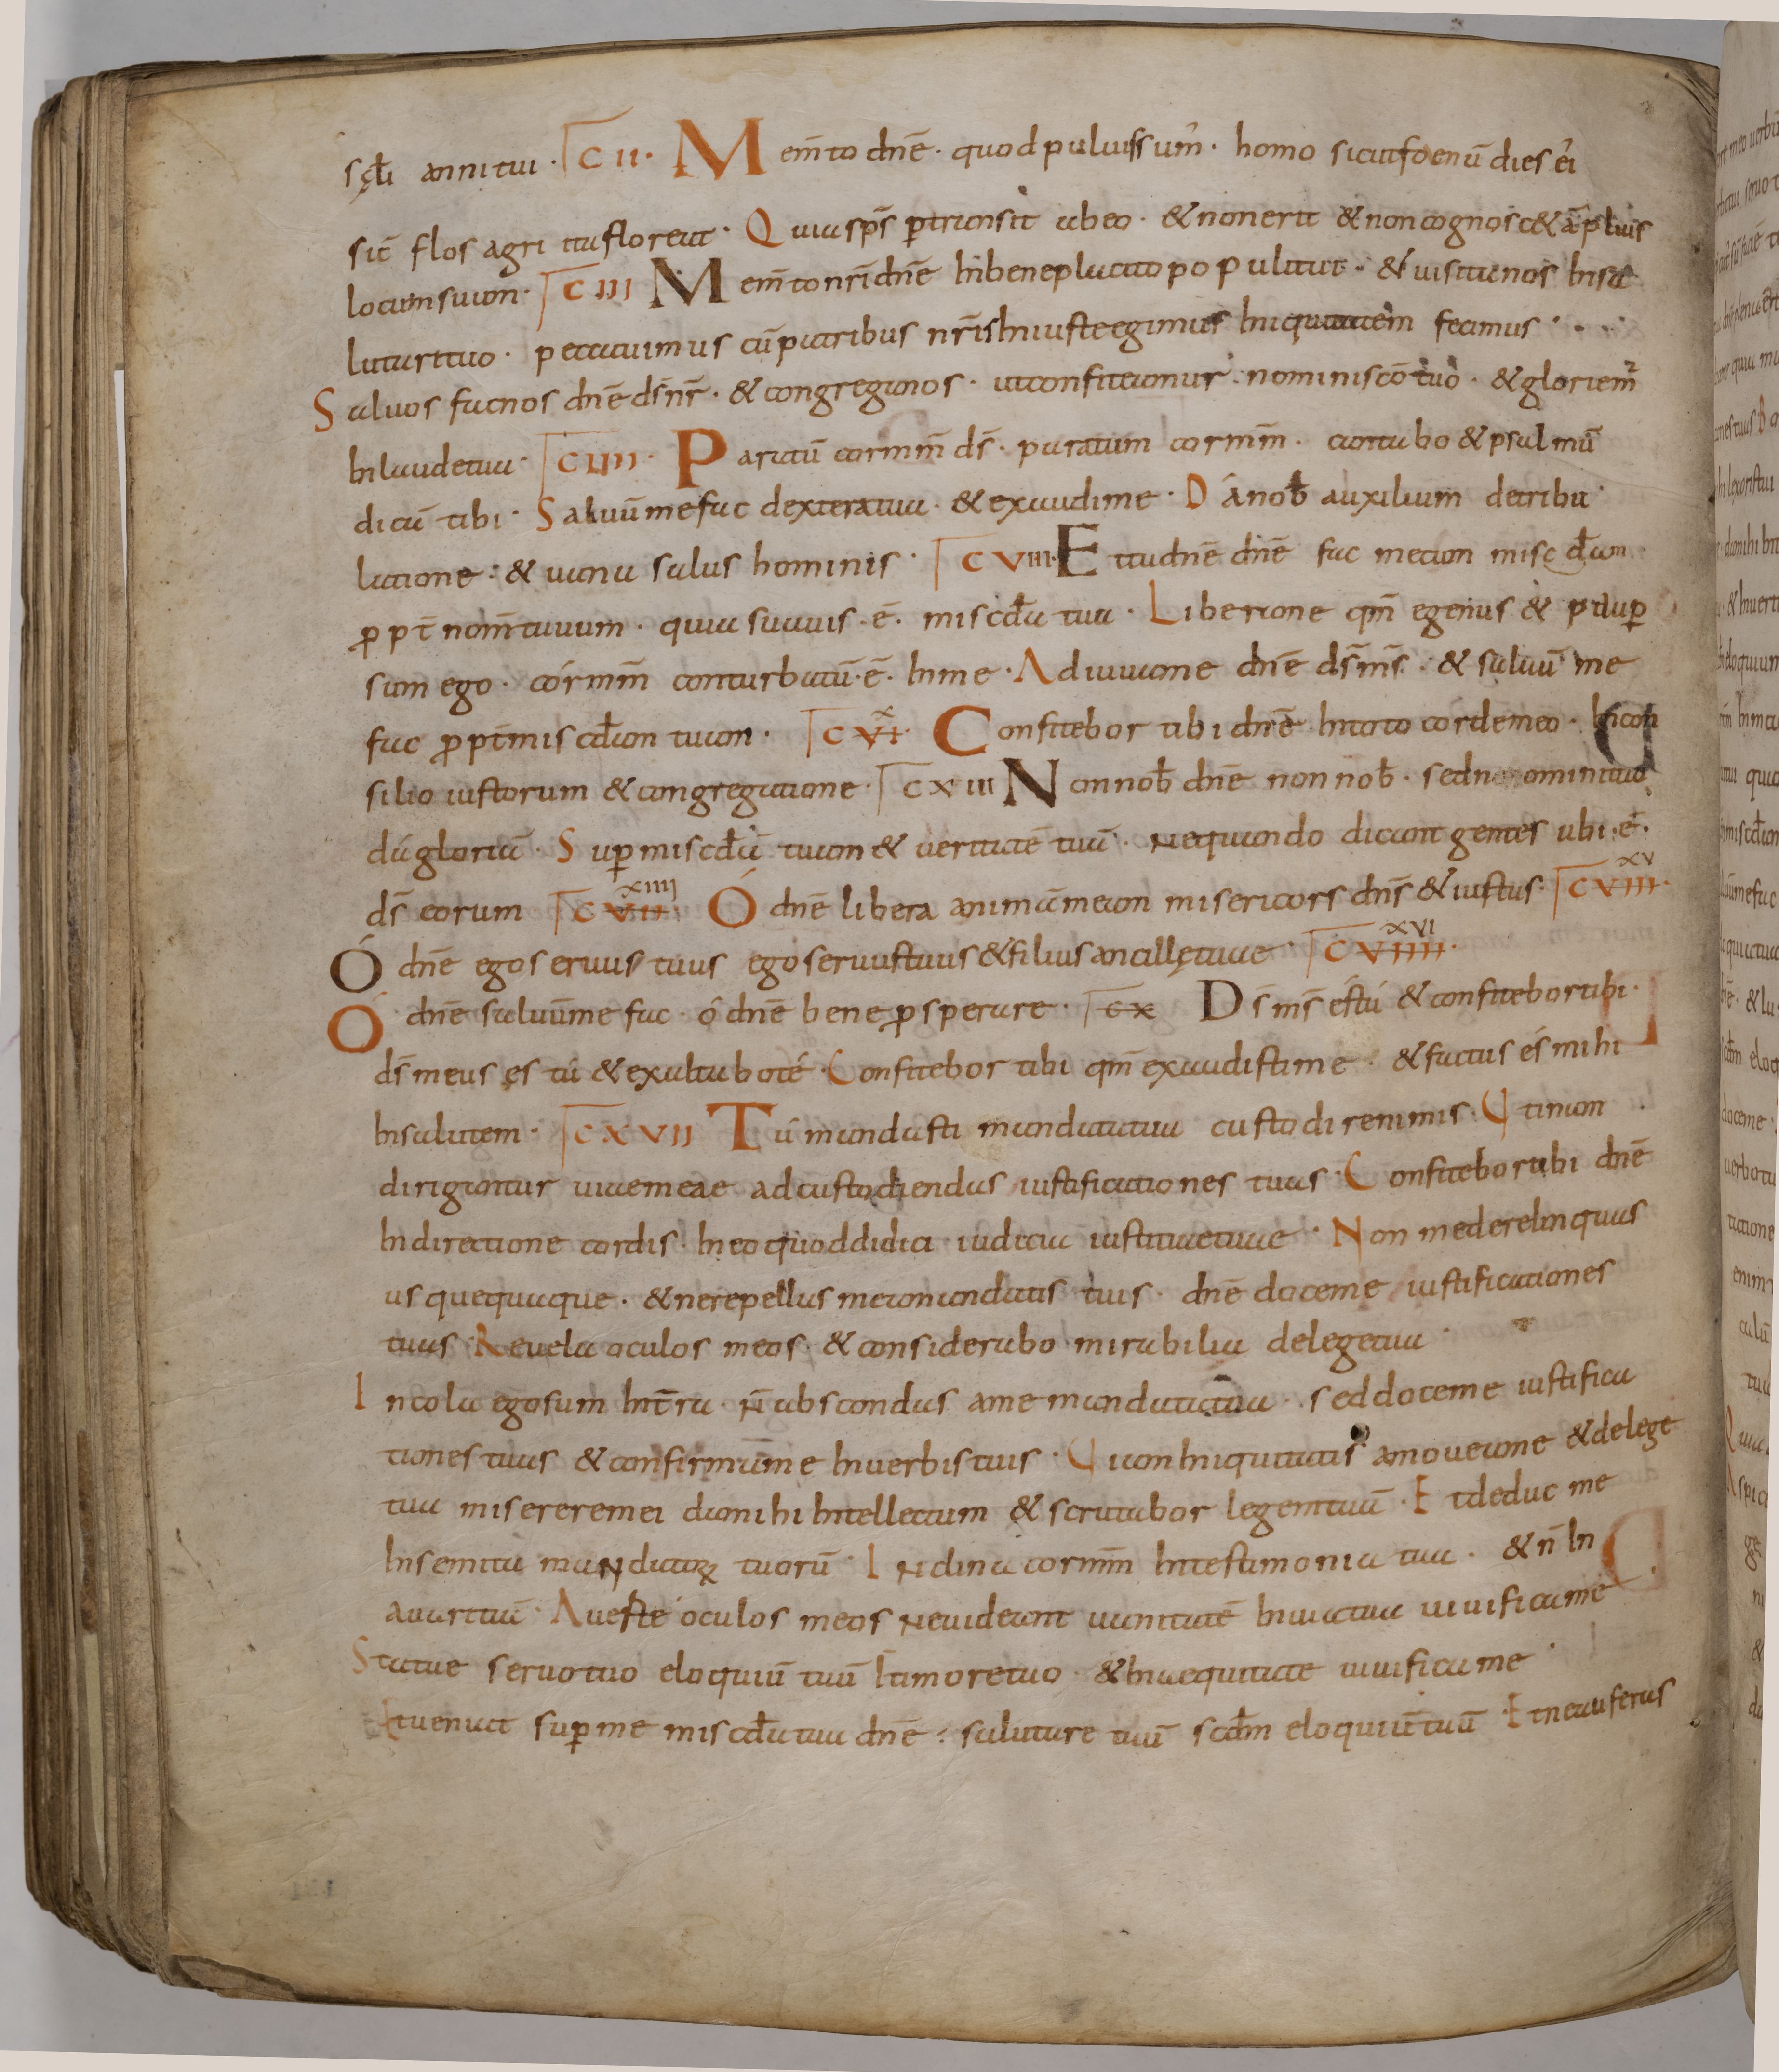 sc̄li anni tui · CII · Mem̄to dn̄e · quod puluis sum̄ · homo sicut foenū dies ei
sic̄ flos agri ita florebit · Quia sp̄s ptransit ab eo · & non erit & non cognosc& āplius
locum suum · CIII Mem̄to nr̄i dn̄e In beneplacito populi tui · & uisita nos In sa
lutari tuo · peccauimus cū patribus nr̄is Iniuste egimus Iniquitatem fecimus ·
Saluos fac nos dn̄e ds̄ nr̄ · & congrega nos · ut confiteamur nomini scō tuo · & gloriem̄
In laude tua · CIIII · Paratū cor mm̄ ds̄ · paratum cor mm̄ · cantabo & psalmū
dicā tibi · Saluū me fac dextera tua · & exaudi me · Dā nob̄ auxilium de tribu
latione · & uana salus hominis · CVIII · Et tu dn̄e dn̄e fac mecum misc̄dam
ppt̄ nom̄ tuum · quia suauis · ē · misc̄da tua · Libera me qm̄ egenus & paup
sum ego · cor mm̄ conturbatū · ē · In me · Adiuua me dn̄e ds̄ ms̄ · & saluū me
fac ppt̄ misc̄dam tuam · CXVI · Confitebor tibi dn̄e In toto corde meo · In con
silio iustorum & congregatione · CXIII Non nob̄ dn̄e non nob̄ · sed nomini tuo
dá gloriā · Sup misc̄dā tuam & ueritatē tuā · Nequando dicant gentes ubi · ē ·
ds̄ eorum CVII XIIII Ó dn̄e libera animā meam misericors dn̄s & iustus · CVIII XV
Ó dn̄e ego seruus tuus ego seruus tuus & filius ancillę tuae · CVIIII XVI
Ó dn̄e saluū me fac · ó dn̄e bene psperare · CX Ds̄ ms̄ es tú & confitebor tibi ·
ds̄ meus es tú & exaltabo té · Confitebor tibi qm̄ exaudisti me · & factus és mihi
In salutem · CXVII Tú mandasti mandata tua custodire nimis · Utinam
dirigantur uiae meae ad custodiendas iustificationes tuas · Confitebor tibi dn̄e
In directione cordis · In eo quod didici iudicia iustitiae tuae · Non me derelinquas
usquequaque · & ne repellas me a mandatis tuis · dn̄e doce me iustificationes
tuas · Reuela oculos meos · & considerabo mirabilia de lege tua ·
Incola ego sum In t̄ra · N̄ abscondas a me mandata tua · sed doce me iustifica
tiones tuas & confirma me In uerbis tuis · Uiam Iniquitatis amoue a me & de lege
tua miserere mei da mihi Intellectum & scrutabor legem tuā · Et deduc me
In semita maNdatorꝝ tuorū · INclina cor mm̄ In testimonia tua · & n̄ In
auaritiā · Auerte oculos meos Ne uideant uanitatē In uia tua uiuifica me
Statue seruo tuo eloquiū tuū I timore tuo · & In aequitate uiuifica me ·
Et ueniat sup me misc̄da tua dn̄e · salutare tuū scd̄m eloquiū tuū · Et ne auferas